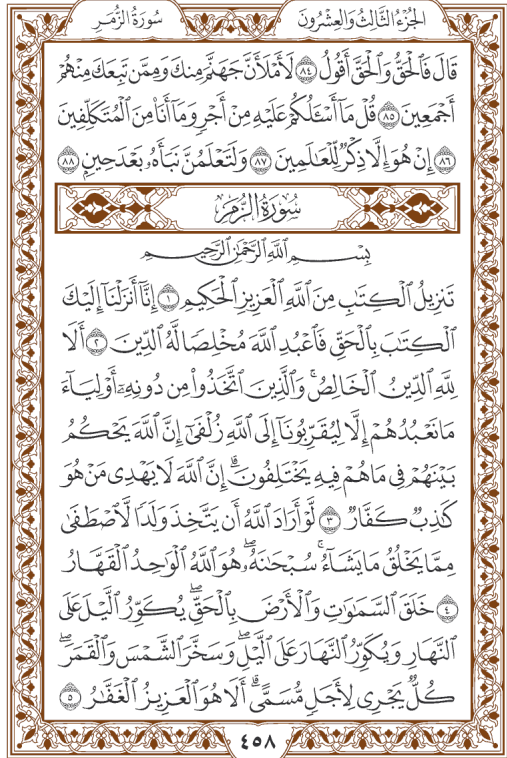 الجُزْءُ الثَّالِثُ وَالعِشْرُونَ
سُورَةُ الزُّمَر
قَالَ فَٱلۡحَقُّ وَٱلۡحَقَّ أَقُولُ ٨٤ لَأَمۡلَأَنَّ جَهَنَّمَ مِنكَ وَمِمَّن تَبِعَكَ مِنۡهُمۡ
أَجۡمَعِينَ ٨٥ قُلۡ مَآ أَسۡـَٔلُكُمۡ عَلَيۡهِ مِنۡ أَجۡرٖ وَمَآ أَنَا۠ مِنَ ٱلۡمُتَكَلِّفِينَ
٨٦ إِنۡ هُوَ إِلَّا ذِكۡرٞ لِّلۡعَٰلَمِينَ ٨٧ وَلَتَعۡلَمُنَّ نَبَأَهُۥ بَعۡدَ حِينِۭ ٨٨
سُورَةُ الزُّمَر
بِسۡمِ ٱللَّهِ ٱلرَّحۡمَٰنِ ٱلرَّحِيمِ
تَنزِيلُ ٱلۡكِتَٰبِ مِنَ ٱللَّهِ ٱلۡعَزِيزِ ٱلۡحَكِيمِ ١ إِنَّآ أَنزَلۡنَآ إِلَيۡكَ
ٱلۡكِتَٰبَ بِٱلۡحَقِّ فَٱعۡبُدِ ٱللَّهَ مُخۡلِصٗا لَّهُ ٱلدِّينَ ٢ أَلَا
لِلَّهِ ٱلدِّينُ ٱلۡخَالِصُۚ وَٱلَّذِينَ ٱتَّخَذُواْ مِن دُونِهِۦٓ أَوۡلِيَآءَ
مَا نَعۡبُدُهُمۡ إِلَّا لِيُقَرِّبُونَآ إِلَى ٱللَّهِ زُلۡفَىٰٓ إِنَّ ٱللَّهَ يَحۡكُمُ
بَيۡنَهُمۡ فِي مَا هُمۡ فِيهِ يَخۡتَلِفُونَۗ إِنَّ ٱللَّهَ لَا يَهۡدِي مَنۡ هُوَ
كَٰذِبٞ كَفَّارٞ ٣ لَّوۡ أَرَادَ ٱللَّهُ أَن يَتَّخِذَ وَلَدٗا لَّٱصۡطَفَىٰ
مِمَّا يَخۡلُقُ مَا يَشَآءُۚ سُبۡحَٰنَهُۥۖ هُوَ ٱللَّهُ ٱلۡوَٰحِدُ ٱلۡقَهَّارُ
٤ خَلَقَ ٱلسَّمَٰوَٰتِ وَٱلۡأَرۡضَ بِٱلۡحَقِّۖ يُكَوِّرُ ٱلَّيۡلَ عَلَى
ٱلنَّهَارِ وَيُكَوِّرُ ٱلنَّهَارَ عَلَى ٱلَّيۡلِۖ وَسَخَّرَ ٱلشَّمۡسَ وَٱلۡقَمَرَۖ
كُلّٞ يَجۡرِي لِأَجَلٖ مُّسَمًّىۗ أَلَا هُوَ ٱلۡعَزِيزُ ٱلۡغَفَّٰرُ ٥
٤٥٨